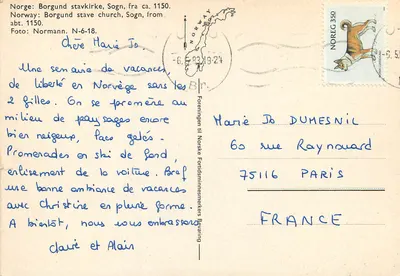 Norge: Borgund stavkirke, Sogn, fra ca. 1150.
Norway: Borgund stave church, Sogn, from
abt. 1150.
Foto: Normann. N-6-18.
Chère Marie Jo.
Une semaine de vacances
de liberté en Norvège sans les
2 filles. On se promène au
milieu de paysages encore
bien neigeux, lacs gelés.
Promenades en ski de fond,
enlisement de la voiture. Bref
une bonne ambiance de vacances
avec Christine en pleine forme.
A bientôt, nous vous embrassons
Claire et Alain
NORWAY
83 19-21
NOREG 350
Foreningen til Norske Fortidsminnesmerkers Bevaring
Marie Jo DUMESNIL
60 rue Raynouard
75116 PARIS
FRANCE